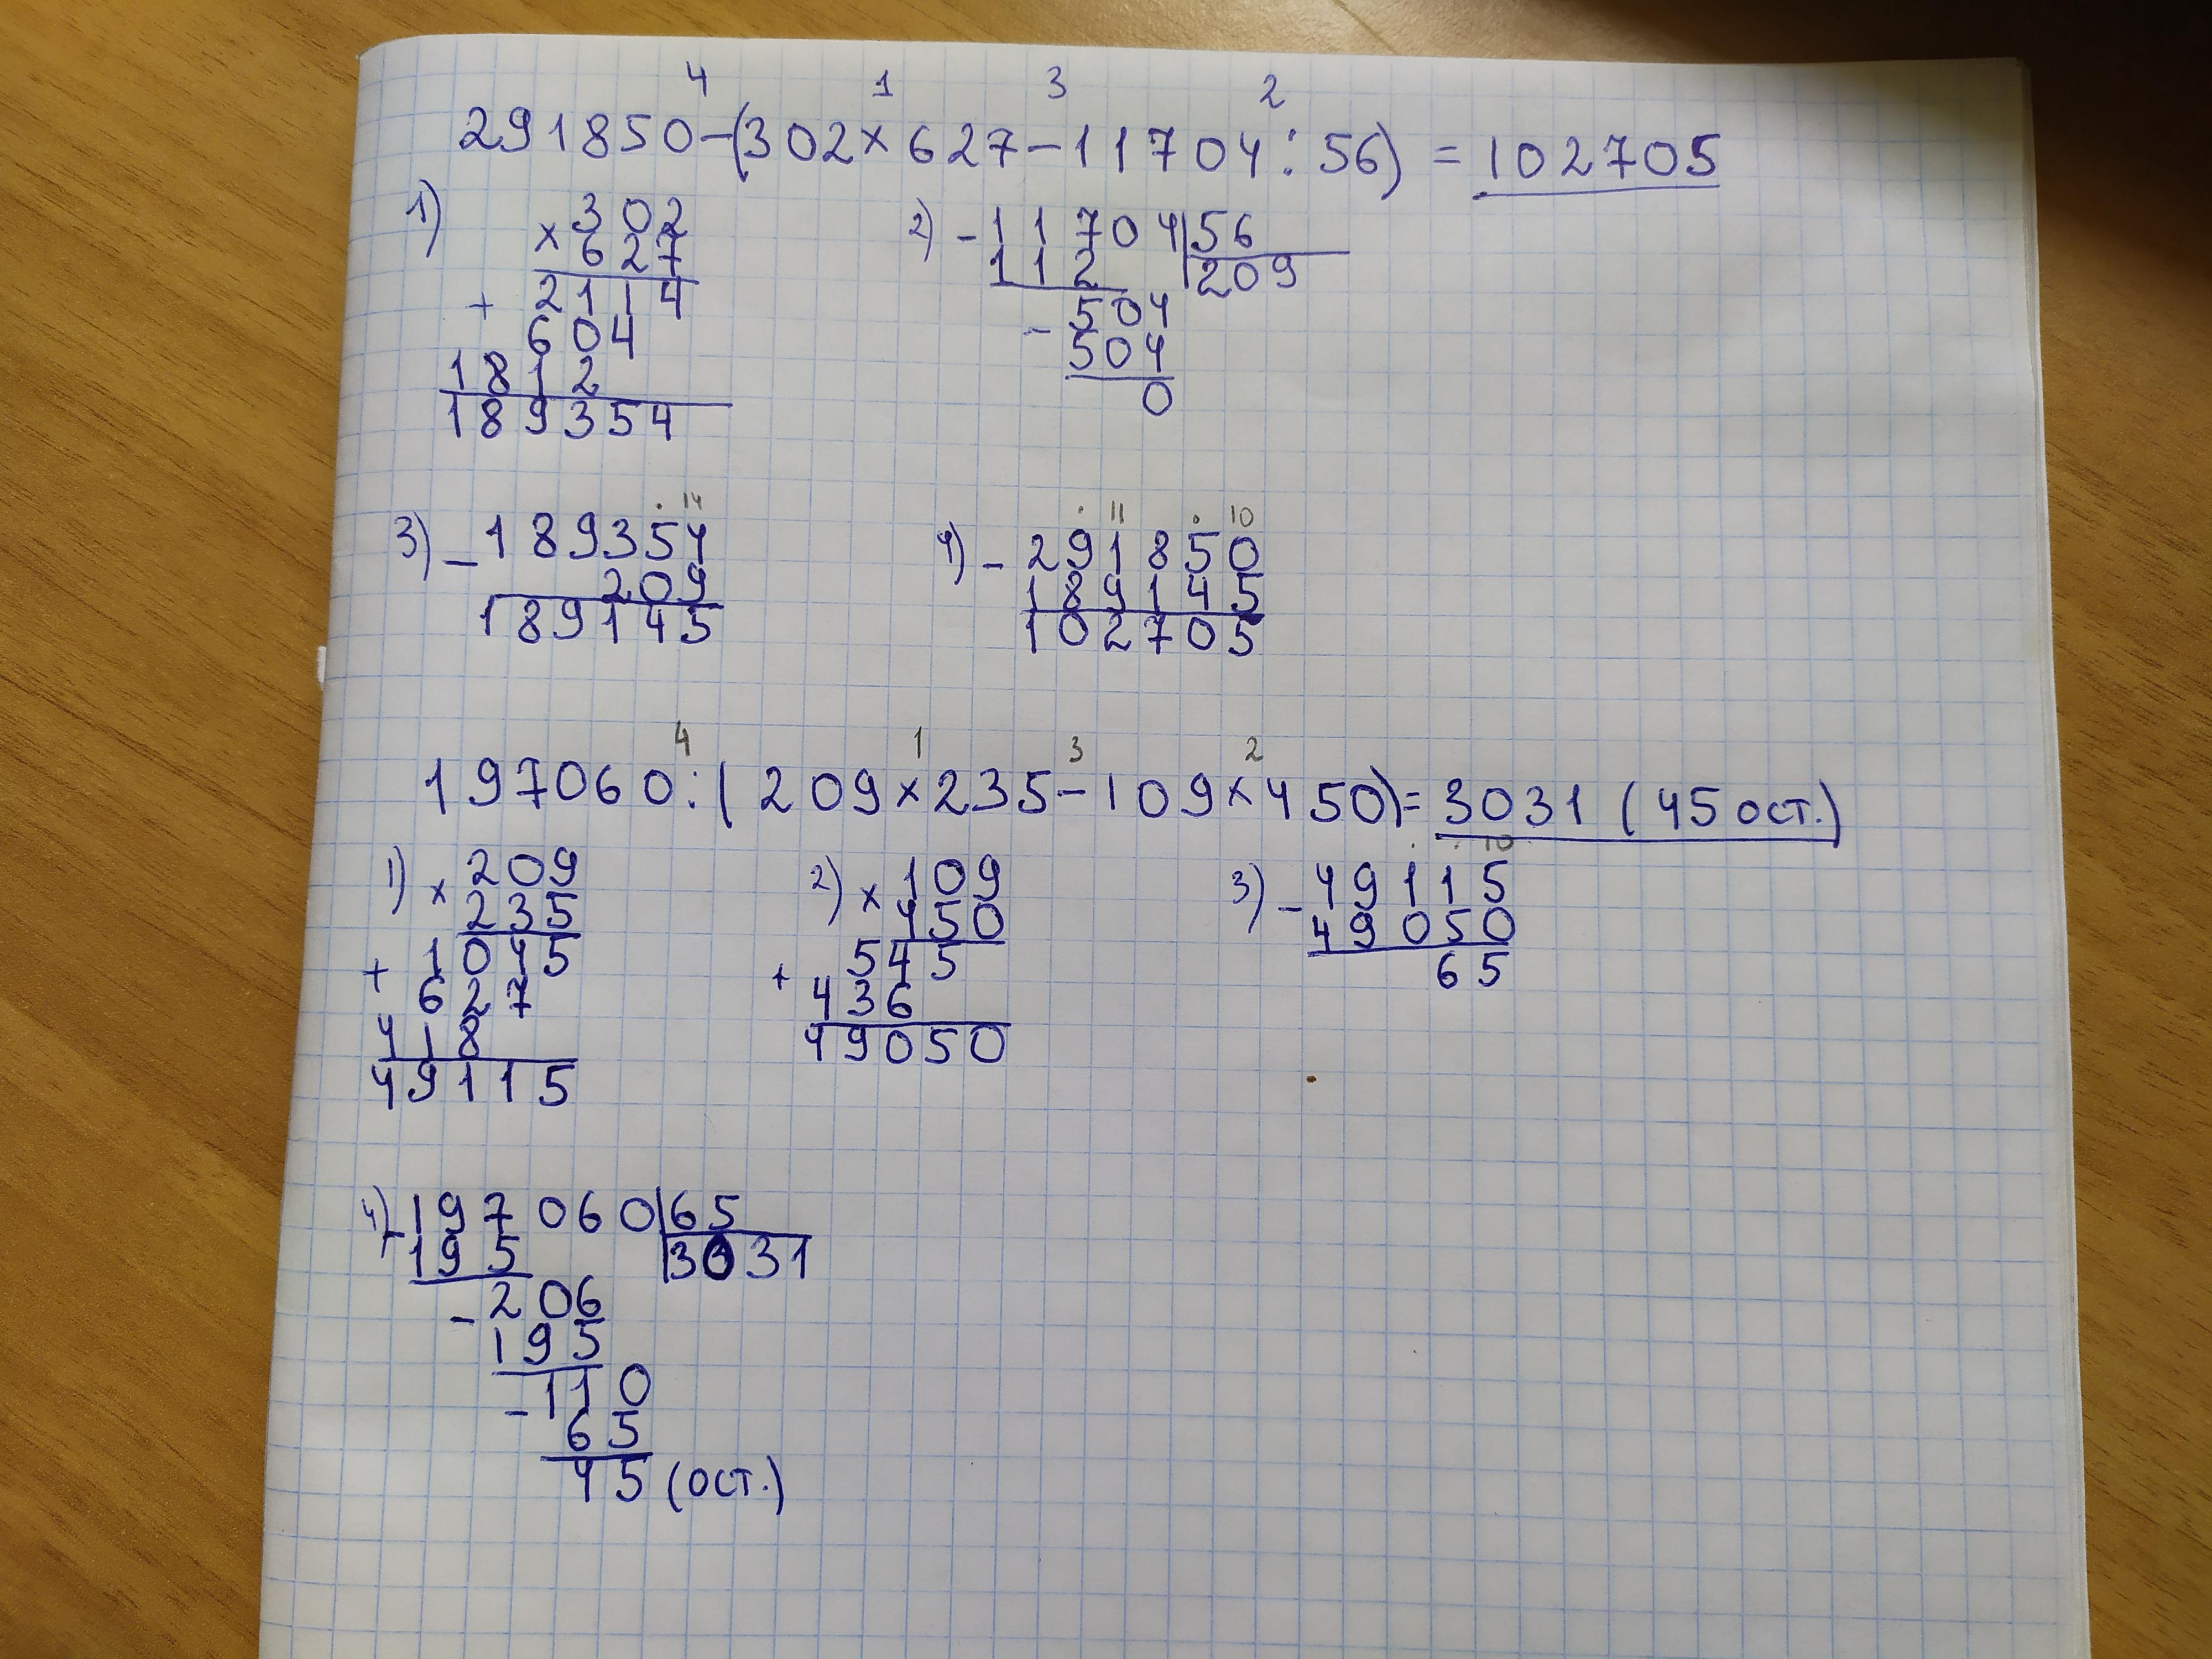 4 1 3 2
291850-(302×627-11704:56) = 102705
1) ×302
627
+ 2114
604
1812
189354
2) -11704|56
112 209
-504
504
0
3) -189354
. 14
209
189145
4) -291850
. 11 . 10
189145
102705
4 1 3 2
197060:(209×235-109×450)= 3031 (45 ост.)
1) ×209
235
+ 1045
627
418
49115
2) ×109
450
+ 545
436
49050
3) -49115
. . 10
49050
65
4) -197060|65
195 3031
-206
195
-110
65
45 (ост.)